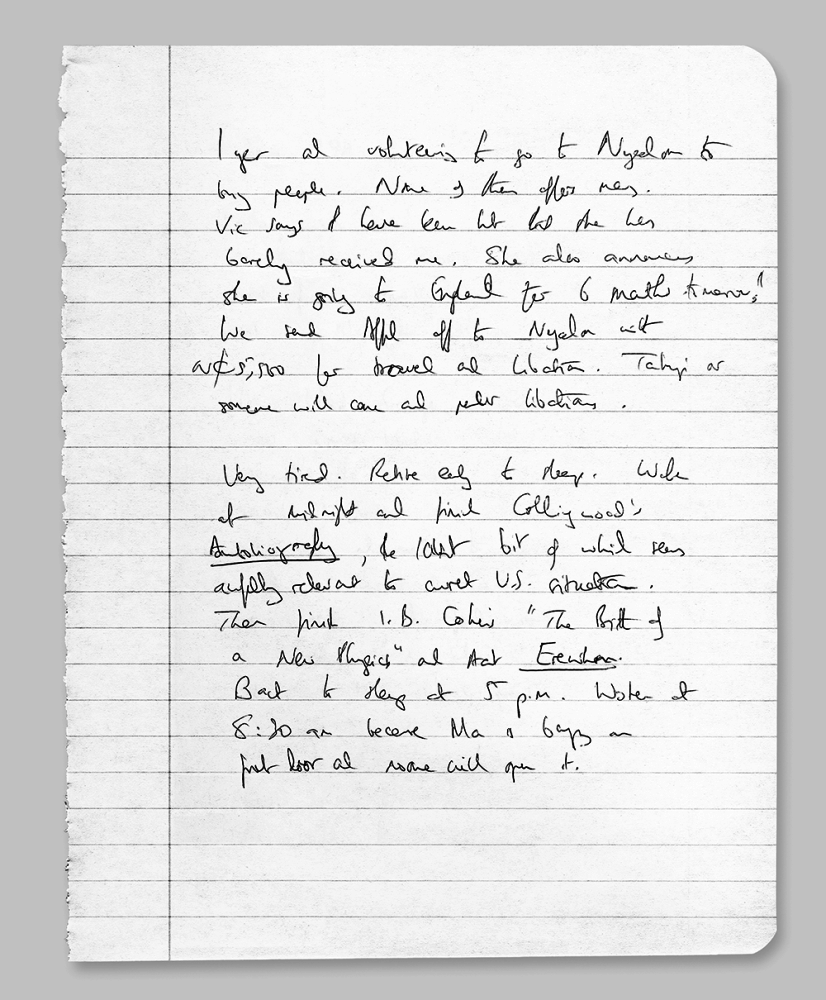 I get and volunteering to go to Nyalon to
bury people. None of them offer money.
Vic says I have been but she has
barely received me. She also announces
she is going to England for 6 months tomorrow!
We send off to Nyalon with
N₵5,500 for travel and libation. or
someone will come and pour libations.
Very tired. Retire early to sleep. Wake
at midnight and finish Collingwood's
Autobiography, the last bit of which seems
awfully relevant to current U.S. situation.
Then finish I.B. Cohen's "The Birth of
a New Physics" and start Erewhon.
Back to sleep at 5 p.m. Woken at
8:30 am because Ma is on
front door and will open it.